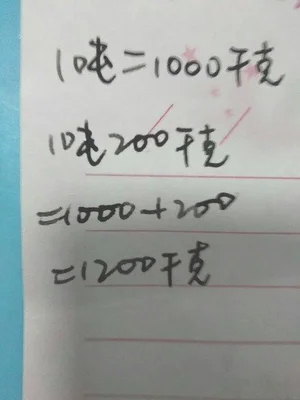 10吨=1000千克
10吨200千克
=1000+200
=1200千克